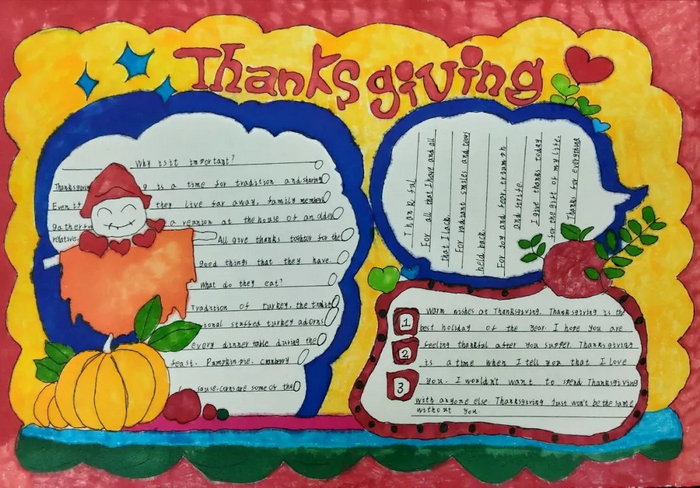 Thanksgiving
Why isit important?
Thanksgiving is a time for tradition and sharing
Even if they live far away, family members
gather for a reunion at the house of an older
relative. All give thanks together for the
good things that they have.
What do they eat?
Tradition of turkey, the tradit
ional stuffed turkey adorns
every dinner table during the
feast. Pumpkin pie, cranberry
sauce, corn are some of the
Thankful
For all that I have and all
that I lack
For radiant smiles and tears
held back
For joy and fear, triumph
and strife
I give thanks today
for the gift of my life.
Thanks for everything
1
2
3
Warm wishes at Thanksgiving. Thanksgiving is the
best holiday of the year. I hope you are
feeling thankful after you supper. Thanksgiving
is a time when I tell you that I love
you. I wouldn't want to spend Thanksgiving
with anyone else. Thanksgiving Just won't be the same
without you